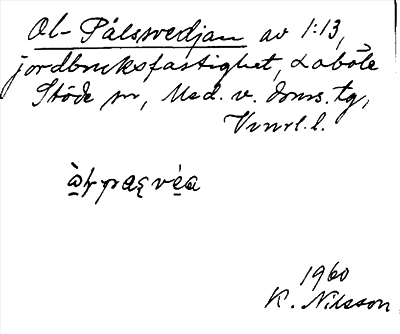 Ol-Pålsvedjan av 1:13,
jordbruksfastighet, Laböle
Stöde sn, Med. v. doms. tg,
Vnrl. l.
1960
K. Nilsson